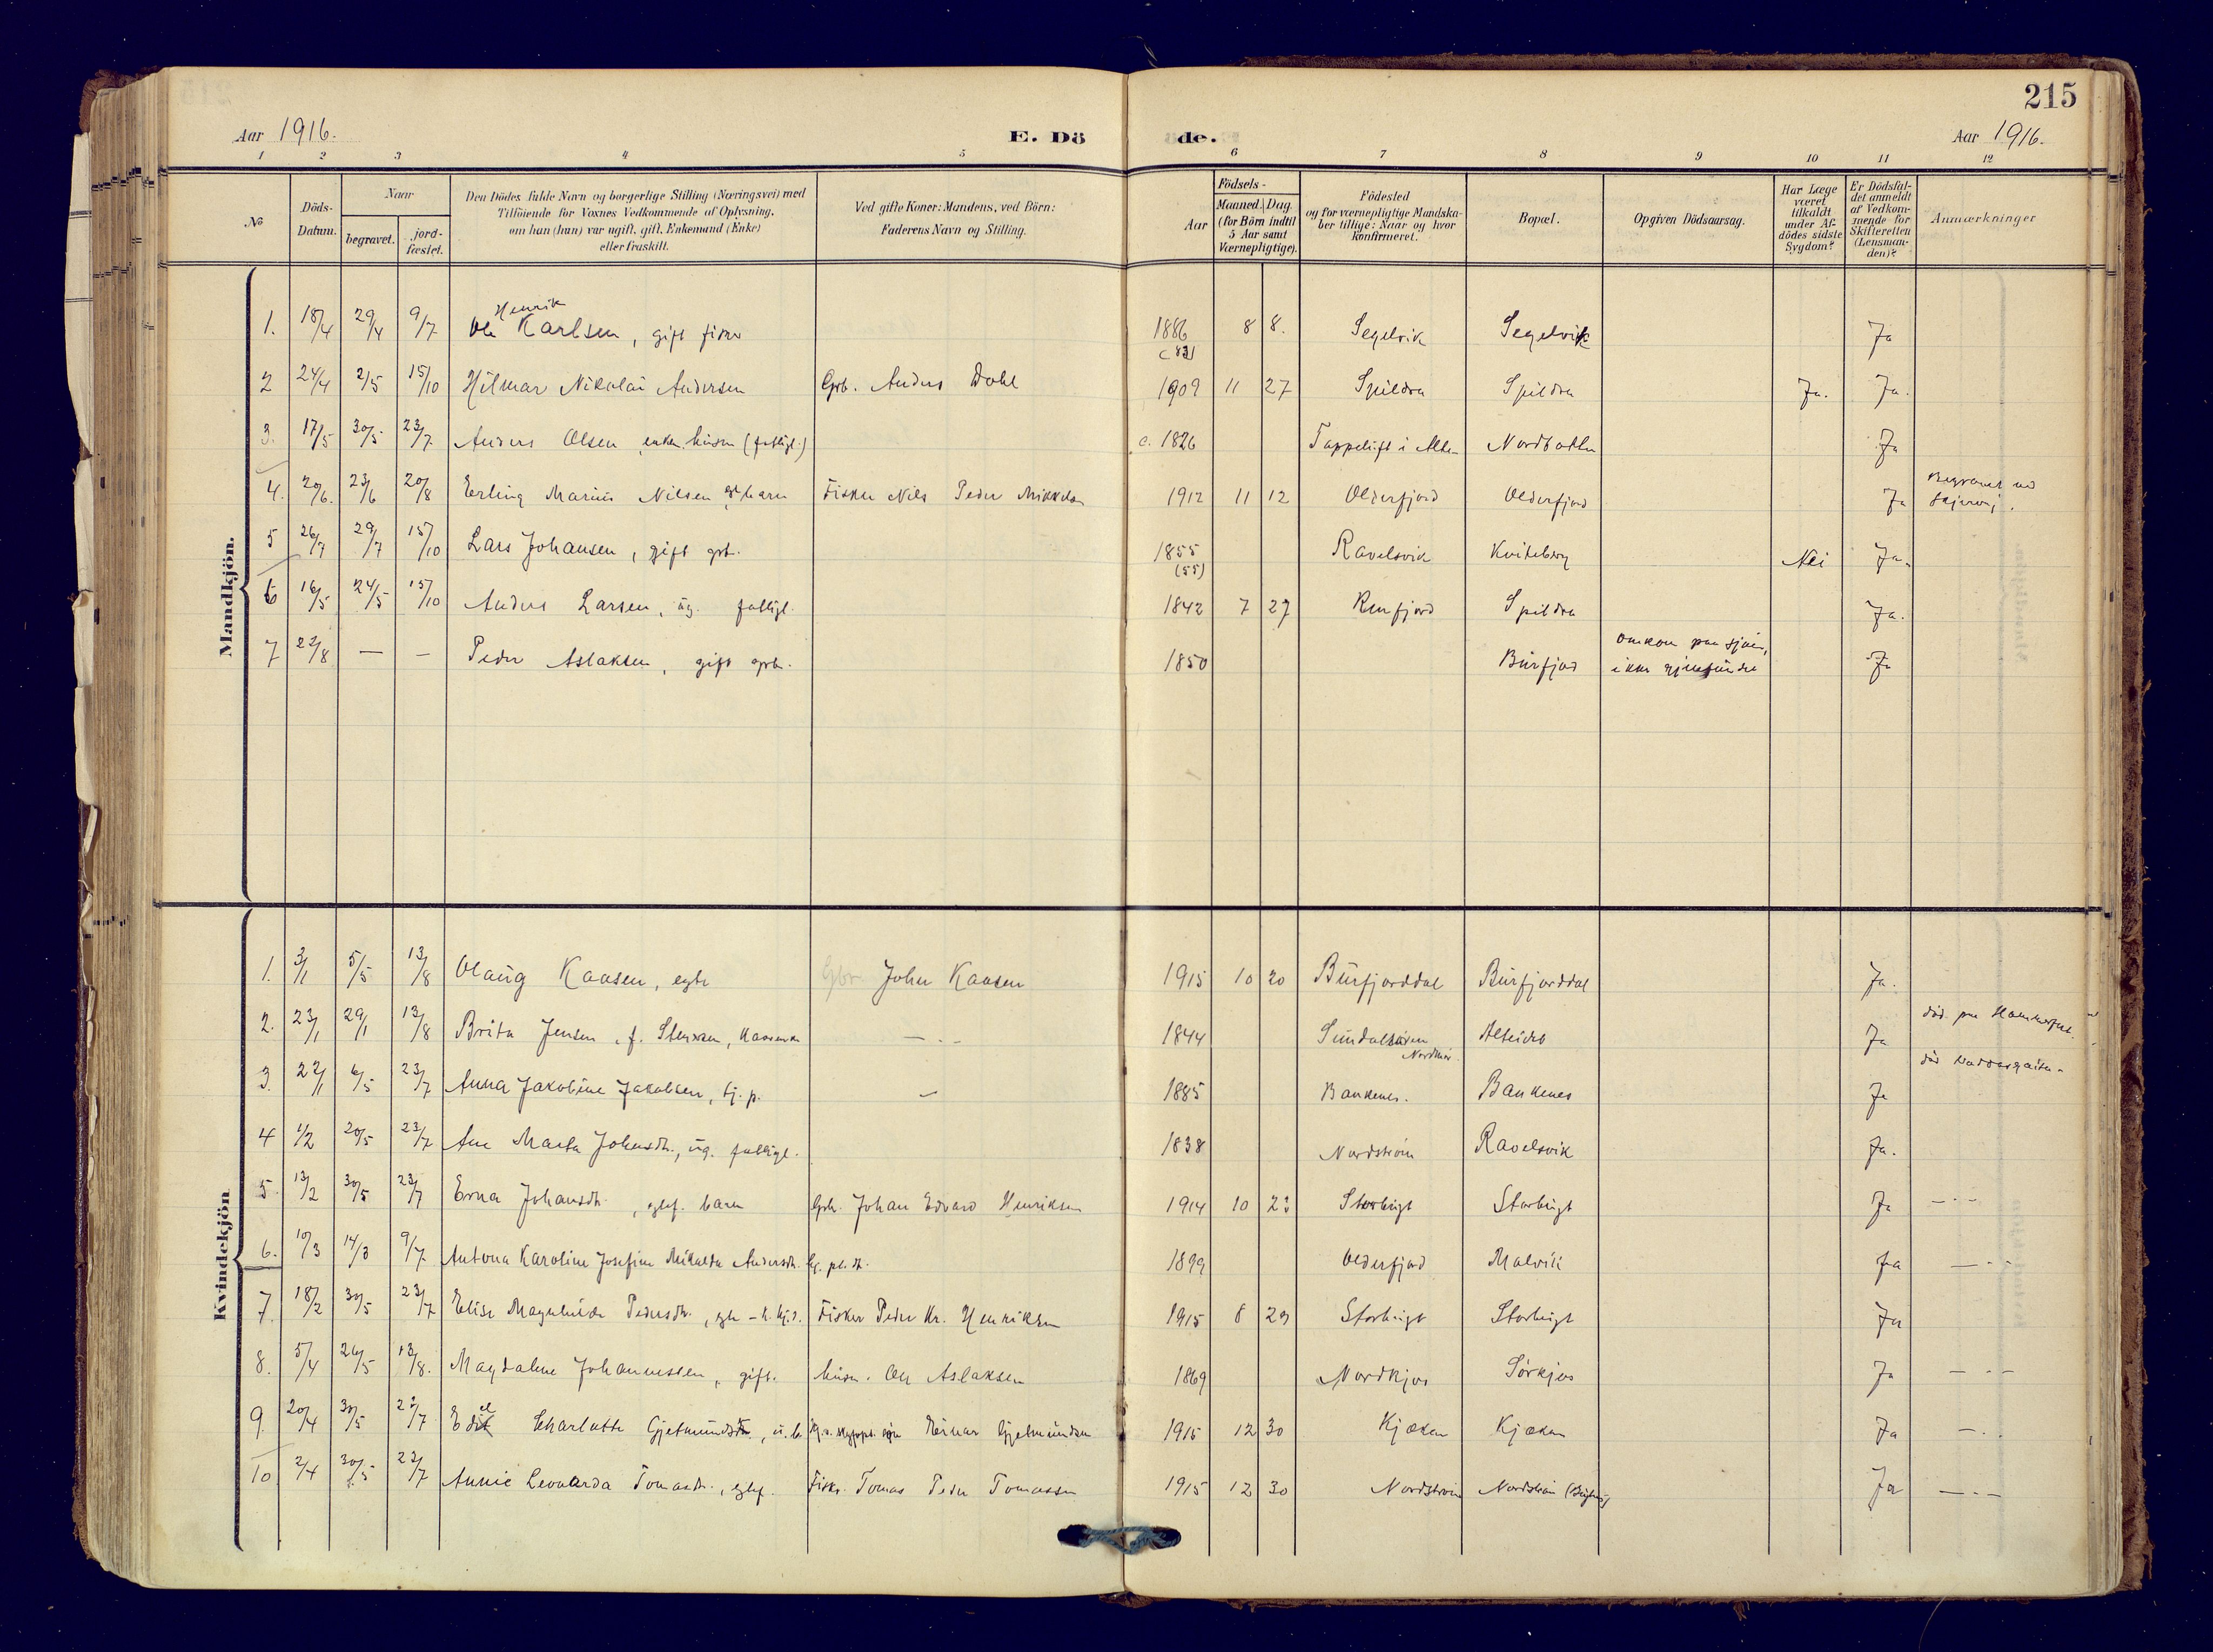 215
Aar 1916.
E. Dö de.
Aar 1916.
1 2 3 4 5 6 7 8 9 10 11 12
No
Döds-Datum.
Naar
begravet.
jord-fæstet.
Den Dödes fulde Navn og borgerlige Stilling (Næringsvei) med
Tilföiende for Voxnes Vedkommende af Oplysning,
om han (hun) var ugift, gift, Enkemand (Enke)
eller fraskilt.
Ved gifte Koner: Mandens, ved Börn:
Faderens Navn og Stilling.
Födsels-
Aar
Maaned. Dag.
(for Börn indtil
5 Aar samt
Værnepligtige).
Födested
og for værnepligtige Mandska-
ber tillige: Naar og hvor
konfirmeret.
Bopæl.
Opgiven Dödsaarsag.
Har Læge
været
tilkaldt
under Af-
dödes sidste
Sygdom?
Er Dödsfal-
det anmeldt
af Vedkom-
mende for
Skifteretten
(Lensman-
den)?
Anmærkninger
Mandkjön.
1. 18/4 29/4 9/7 Ole Henrik Karlsen, gift fisker 1886 8 8. Segelvik Segelvik Ja
2 24/4 2/5 15/10 Hilmar Nikolai Andersen Grb. Anders Dahl 1909 11 27 Spildra Spildra Ja. Ja.
3. 17/5 30/5 23/7 Anders Olsen, enkem. husm (fattigl.) c. 1826 Tappeluft i Alten Nordbotten Ja
4. 20/6. 23/6 20/8 Erling Marius Nilsen barn Fisker Nils Peder Mikkelsen 1912 11 12 Olderfjord Olderfjord Ja Begravet ved Skjervøy.
5 26/7 29/7 15/10 Lars Johansen, gift grb. 1855 (55) Ravelsvik Kviteberg Nei Ja.
6 16/5 24/5 15/10 Anders Larsen, ug. fattigl. 1842 7 27 Spildra Ja.
7 22/8 — — Peder Aslaksen, gift grb. 1850 Burfjord Omkom paa sjøen, ikke gjenfundet Ja
Kvindekjön
1. 3/1 5/5 13/8 Olaug Kaasen, egte John Kaasen 1915 10 20 Burfjorddal Burfjorddal Ja.
2. 23/1 29/1 13/8 Brita Jensen, f. Stensen, Kaarenke — 1844 Sundalsøren Nordmør. Alteidet Ja død paa Hammerfest
3. 22/1 6/5 23/7 Anna Jakobine Jakobsen, tj. p. — 1885 Bankenes. Bankenes Ja
4 1/2 20/5 23/7 Ane Marta Johnsdtr., ug. fattigl. 1838 Nordstrøm Ravelsvik Ja.
5. 13/2 30/5 23/7 Erna Johansdtr., egtef. barn Grb. Johan Edvard Henriksen 1914 10 Storbugt Storbugt Ja —
6. 10/3 14/3 9/7 Antona Karoline Josefine Mikalda Andersdtr. 1899 Olderfjord Malvik Ja —
7. 18/2 30/5 23/7 Elise Magnhilde Pedersdtr. Fisker Peder Kr. Henriksen 1915 8 29 Storbugt Storbugt Ja
8. 5/4 26/5 13/8. Magdalene Johannessen, gift. husm. Ole Aslaksen 1869 Nordkjos Sørkjos Ja —
9. 20/4 30/5 23/7 Edel Charlotte Gjetmundsdtr., u. b. Einar Gjetmundsen 1915 12 30 Kjækan Kjækan Ja —
10. 2/4 30/5 23/7 Annie Leonarda Tomasdtr., egtef. Fisker Tomas Peder Tomassen 1915 12 30 Nordstrøm Nordstrøm Ja —